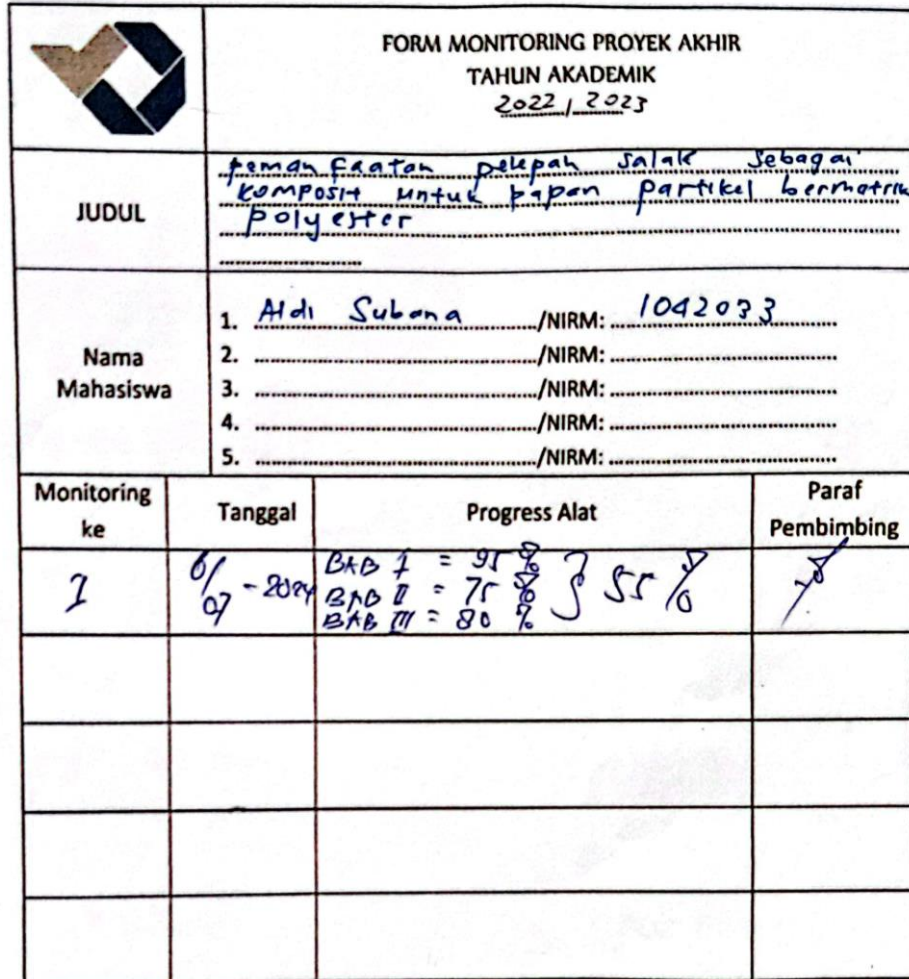 FORM MONITORING PROYEK AKHIR
TAHUN AKADEMIK
2022 / 2023
JUDUL
pemanfaatan pelepah salak sebagai
komposit untuk papan partikel bermatrik
polyester
Nama
Mahasiswa
1. Aldi Subana /NIRM: 1042033
2. /NIRM:
3. /NIRM:
4. /NIRM:
5. /NIRM:
Monitoring
ke
Tanggal
Progress Alat
Paraf
Pembimbing
1
6/07 - 2024
BAB I = 95 %
BAB II = 75 %
BAB III = 80 %
} 55 %